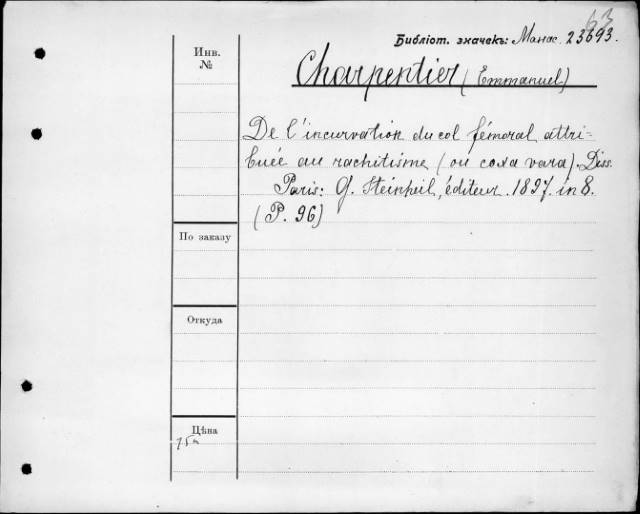 63
Библіот. значекъ: Манас. 23693.
Инв.
№
Charpentier (Emmanuel)
De l'incurvation du col fémoral attri-
buée au rachitisme (ou coxa vara). Diss.
Paris: G. Steinheil, éditeur. 1897. in 8.
(P. 96)
По заказу
Откуда
Цѣна